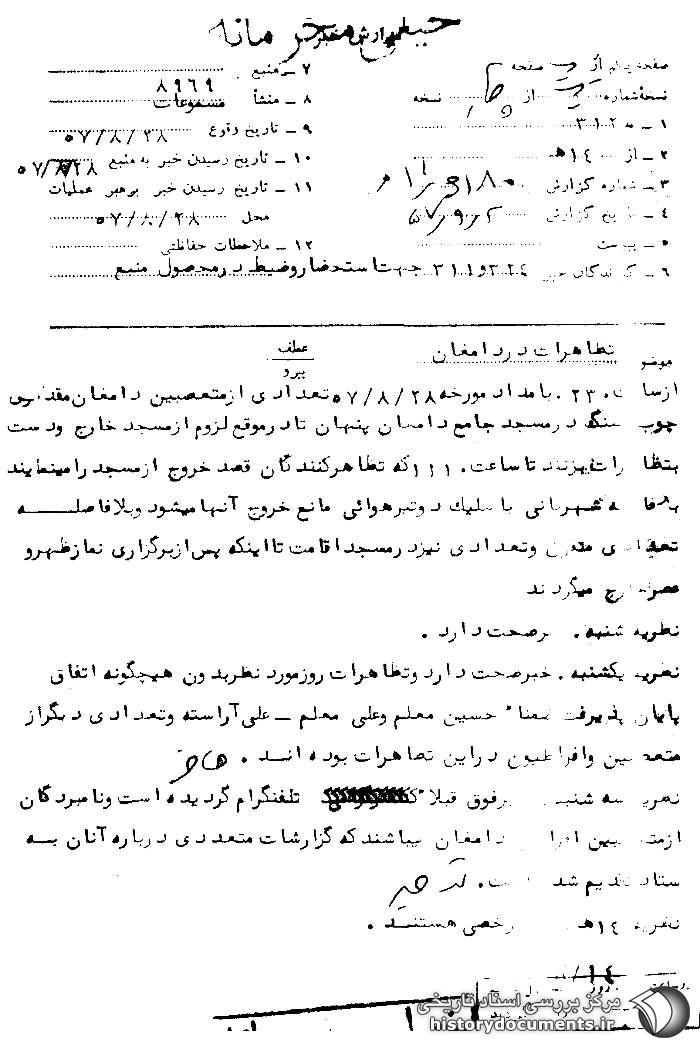 خیلی محرمانه
گزارش خبر
صفحه یکم از یک صفحه
نسخه شماره یک از چهار نسخه
۱ – به ۳۱۲
۲ – از ۱۴ه
۳ – شماره گزارش
۴ – تاریخ گزارش ۵۷/۹/۲
۵ – پیوست
۶ – گیرندگان خبر ۳۲۴ و ۳۱۱ جهت استحضار و ضبط در محصول منبع
۷ – منبع ۸۹۶۹
۸ – منشأ مسموعات
۹ – تاریخ وقوع ۵۷/۸/۲۸
۱۰ – تاریخ رسیدن خبر به منبع ۵۷/۸/۲۸
۱۱ – تاریخ رسیدن خبر برهبر عملیات
محل ۵۷/۸/۲۸
۱۲ – ملاحظات حفاظتی
موضوع تظاهرات در دامغان
عطف
پیرو
از ساعت ۲۳۰ بامداد مورخه ۵۷/۸/۲۸ تعدادی از متعصبین دامغان مقداری
چوب سنگ در مسجد جامع دامغان پنهان تا در موقع لزوم از مسجد خارج و دست
بتظاهرات بزنند تا ساعت ۱۱۱۰ که تظاهرکنندگان قصد خروج از مسجد را مینمایند
شهربانی با شلیک دو تیر هوائی مانع خروج آنها میشود و بلافاصلـــه
تعدادی متفرق و تعدادی نیز در مسجد اقامت تا اینکه پس از برگزاری نماز ظهر و
عصر خارج میگردند
نظریه شنبه. خبر صحت دارد .
نظریه یکشنبه . خبر صحت دارد و تظاهرات روز مورد نظر بدون هیچگونه اتفاق
پایان پذیرفت ضمنا" حسین معلم و علی معلم – علی آراسته و تعدادی دیگر از
متعصبین و افراطیون در این تظاهرات بوده اند .
نظریه سه شنبه خبر فوق قبلا" تلفنگرام گردیده است و نامبردگان
از متعصبین دامغان میباشند که گزارشات متعددی درباره آنان بــه
ستاد تقدیم شده است.
نظریه ۱۴ه هستنــد .
۱۴/
مرکز بررسی اسناد تاریخی
historydocuments.ir